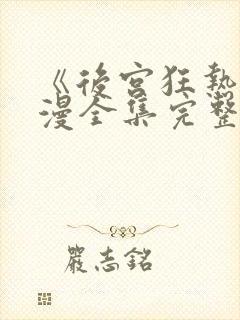 《後宮狂熱
漫全集完整
嚴志銘